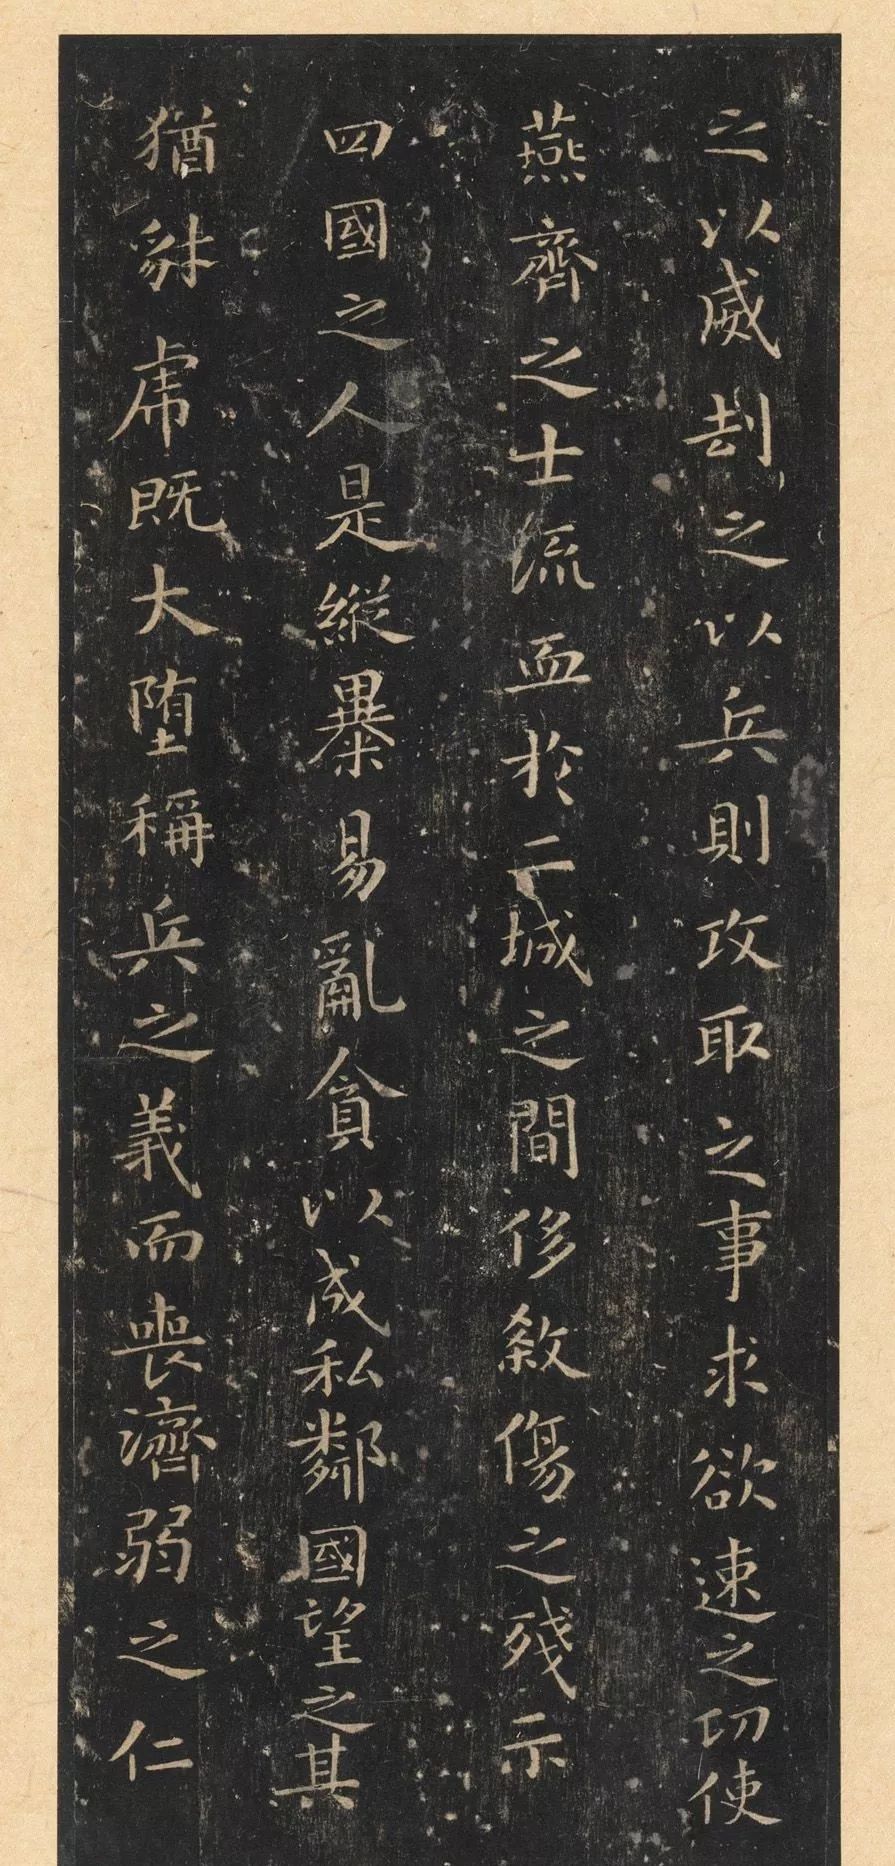 之以威刦之以兵則攻取之事求欲速之功使
燕齊之士流血於二城之間侈殺傷之殘示
四國之人是縱暴易亂貪以成私鄰國望之其
猶豺虎既大堕稱兵之義而喪濟弱之仁